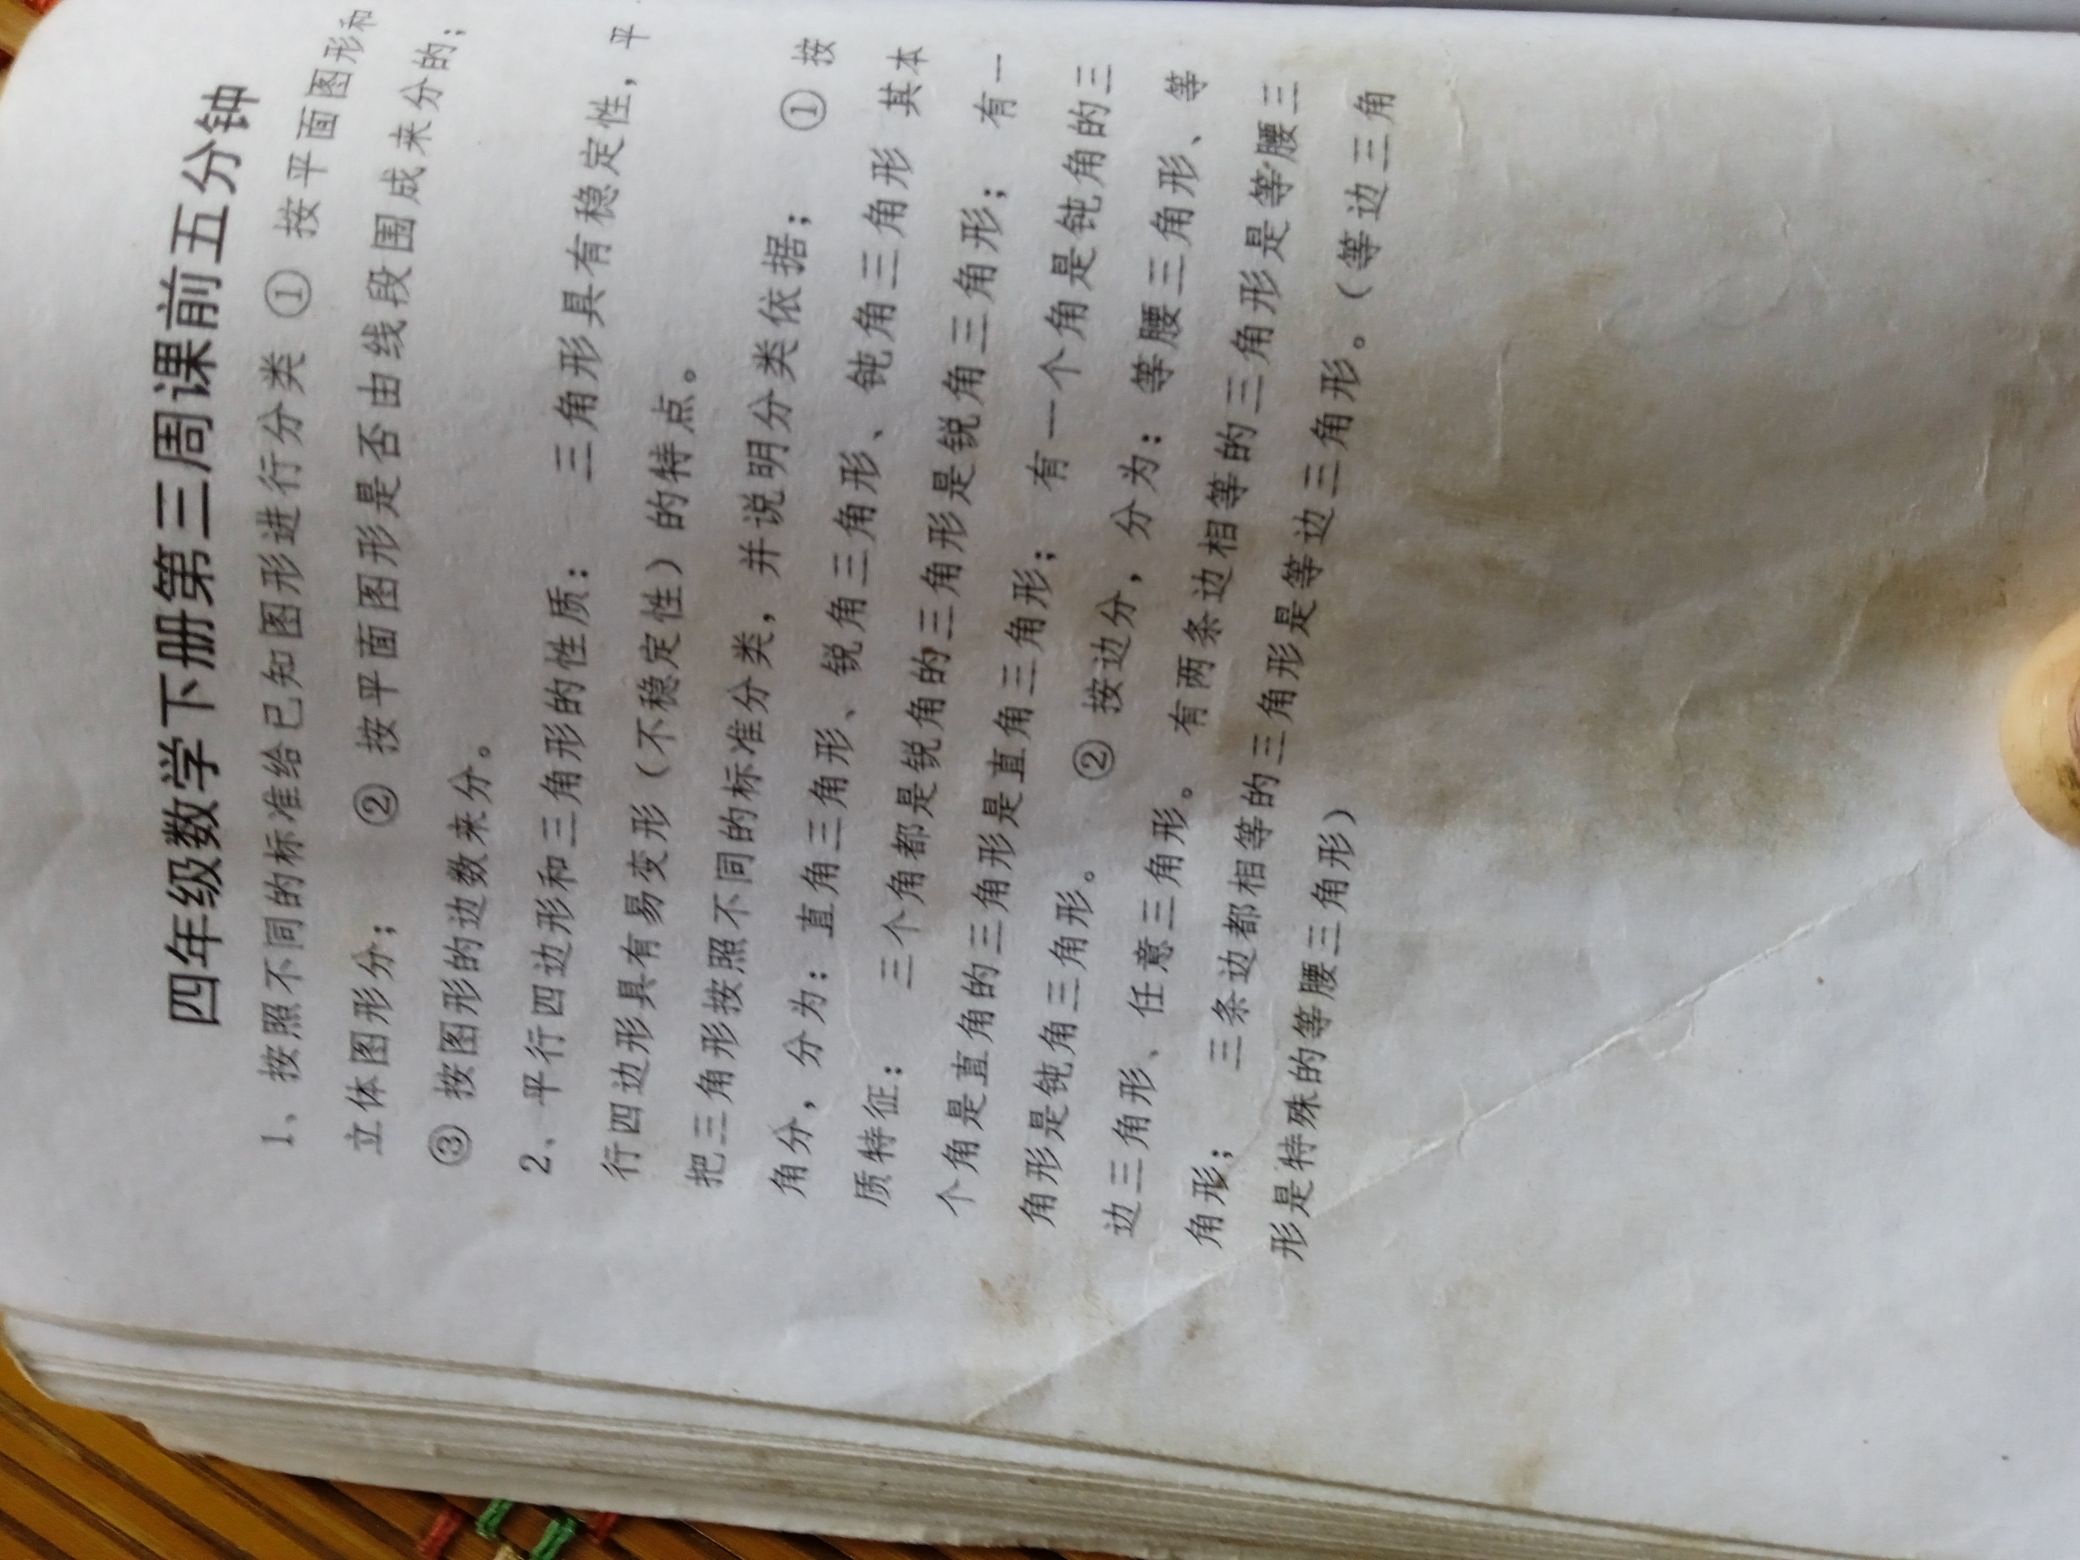 四年级数学下册第三周课前五分钟
1、按照不同的标准给已知图形进行分类 ① 按平面图形和
立体图形分； ② 按平面图形是否由线段围成来分的；
③ 按图形的边数来分。
2、平行四边形和三角形的性质： 三角形具有稳定性，平
行四边形具有易变形（不稳定性）的特点。
把三角形按照不同的标准分类，并说明分类依据； ① 按
角分，分为：直角三角形、锐角三角形、钝角三角形 其本
质特征： 三个角都是锐角的三角形是锐角三角形； 有一
个角是直角的三角形是直角三角形； 有一个角是钝角的三
角形是钝角三角形。 ② 按边分，分为：等腰三角形、等
边三角形、任意三角形。 有两条边相等的三角形是等腰三
角形； 三条边都相等的三角形是等边三角形。（等边三角
形是特殊的等腰三角形）